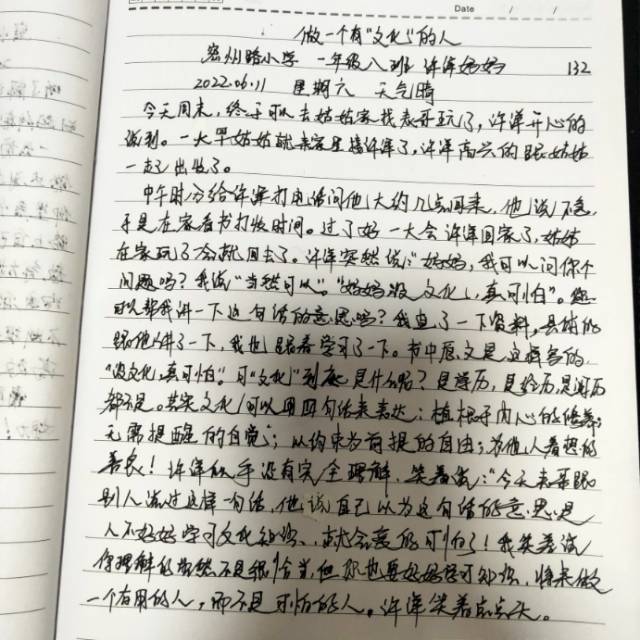 Date / /
做一个有"文化"的人
宏州路小学 一年级八班 许洋妈妈 132
2022.06.11 星期六 天气晴
今天周末,终于可以去姑姑家找表哥玩了,许洋开心的
说到。一大早姑姑就来家里接许洋了,许洋高兴的跟姑姑
一起出发了。
中午时分给许洋打电话问他大约几点回来,他说不急,
于是在家看书打发时间。过了好一大会许洋回家了,姑姑
在家玩了会就回去了。许洋突然说:"妈妈,我可以问你个
问题吗?我说"当然可以"。"妈妈没文化,真可怕"。您
可以帮我讲一下这句话的意思吗?我查了一下资料,具体的
跟他讲了一下,我也跟着学习了一下。书中原文是这样写的,
"没文化,真可怕"。可"文化"到底是什么呢?是学历,是经历,是阅历
都不是。其实文化可以用四句话来表达:植根于内心的修养;
无需提醒的自觉;以约束为前提的自由;为他人着想的
善良!许洋似乎没有完全理解,笑着说:"今天表哥跟
别人说过这样一句话,他说自己以为这句话的意思是
人不好好学习文化知识,就会变的可怕了!我笑着说
你理解的当然不是很恰当,但你也要好好学习知识,将来做
一个有用的人,而不是可怕的人。许洋笑着点点头。